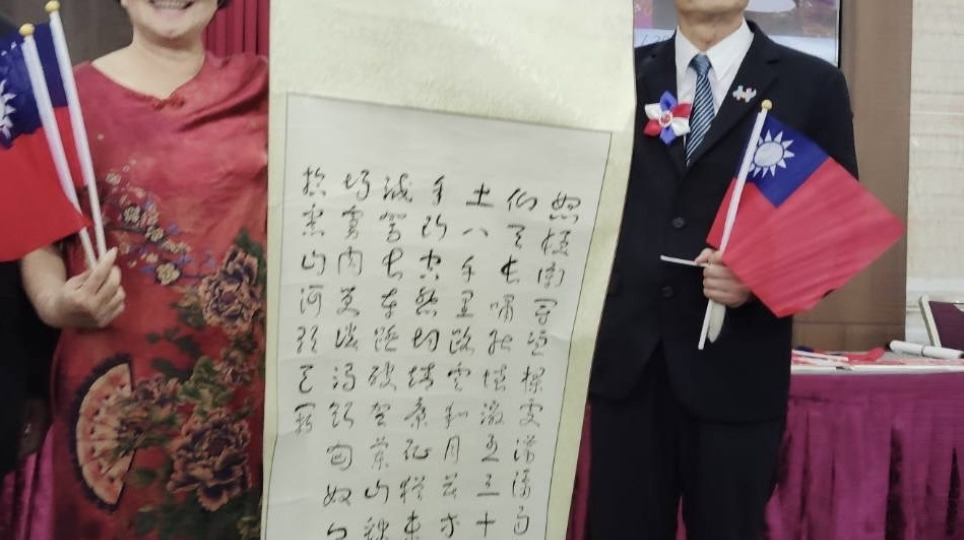 怒髮衝冠憑欄處瀟瀟雨
仰天長嘯壯懷激烈三十
土八千里路雲和月莫等
空悲切靖康恥猶未
滅駕長車踏破賀蘭山缺
虜肉笑談渴飲匈奴血
拾舊山河朝天闕